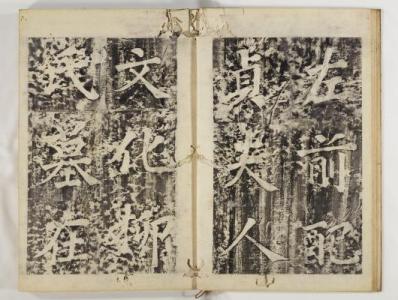 左前配
貞夫人
文化鄉
氏墓在